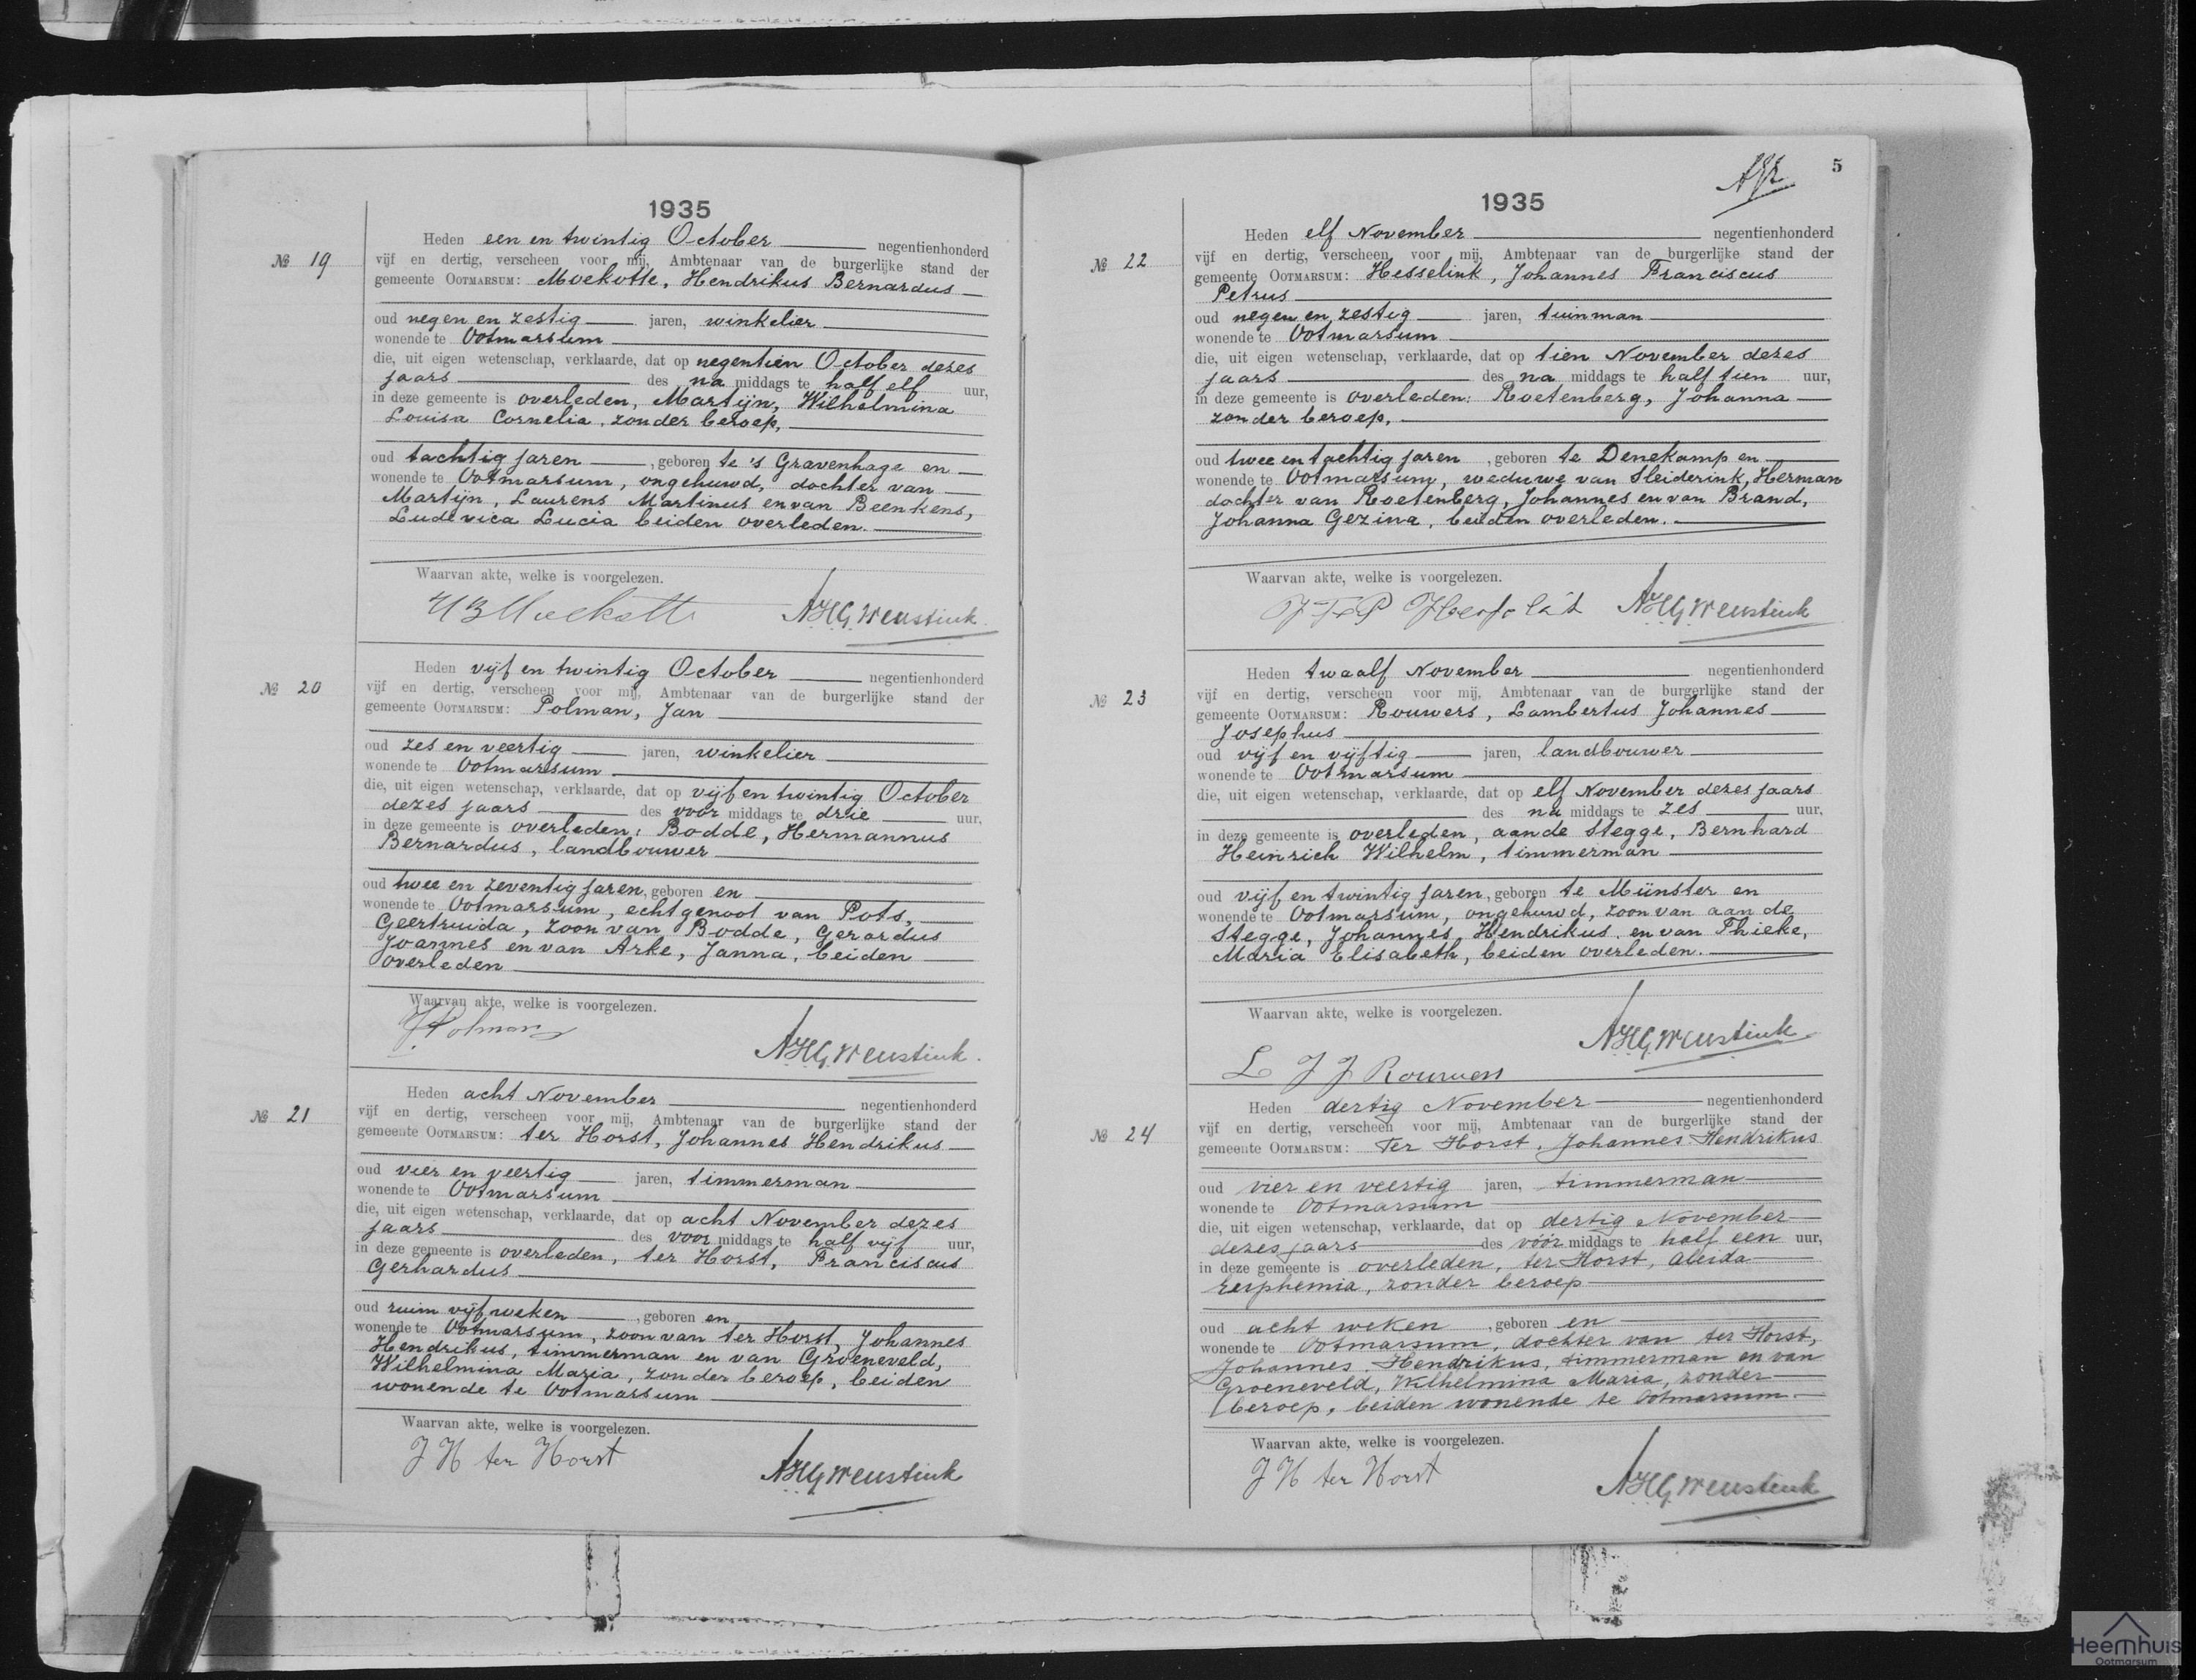 1935
Nº 19
Heden een en twintig October negentienhonderd
vijf en dertig, verscheen voor mij, Ambtenaar van de burgerlijke stand der
gemeente OOTMARSUM: Moekotte, Hendrikus Bernardus
oud negen en zestig jaren, winkelier
wonende te Ootmarsum
die, uit eigen wetenschap, verklaarde, dat op negentien October dezes
jaars des na middags te half elf uur,
in deze gemeente is overleden, Martijn, Wilhelmina
Louisa Cornelia, zonder beroep,
oud tachtig jaren, geboren te 's Gravenhage en
wonende te Ootmarsum, ongehuwd, dochter van
Martijn, Laurens Martinus en van Beenkens,
Ludevica Lucia beiden overleden.
Waarvan akte, welke is voorgelezen.
HBMoekotte AHGWeustink
Nº 20
Heden vijf en twintig October negentienhonderd
vijf en dertig, verscheen voor mij, Ambtenaar van de burgerlijke stand der
gemeente OOTMARSUM: Polman, Jan
oud zes en veertig jaren, winkelier
wonende te Ootmarsum
die, uit eigen wetenschap, verklaarde, dat op vijf en twintig October
dezes jaars des voor middags te drie uur,
in deze gemeente is overleden: Bodde, Hermannus
Bernardus, landbouwer
oud twee en zeventig jaren, geboren en
wonende te Ootmarsum, echtgenoot van Pots,
Geertruida, zoon van Bodde, Gerardus
Joannes en van Arke, Janna, beiden
overleden
Waarvan akte, welke is voorgelezen.
J. Polman
AHGWeustink.
Nº 21
Heden acht November negentienhonderd
vijf en dertig, verscheen voor mij, Ambtenaar van de burgerlijke stand der
gemeente OOTMARSUM: ter Horst, Johannes Hendrikus
oud vier en veertig jaren, timmerman
wonende te Ootmarsum
die, uit eigen wetenschap, verklaarde, dat op acht November dezes
jaars des voor middags te half vijf uur,
in deze gemeente is overleden, ter Horst, Franciscus
Gerhardus
oud ruim vijf weken, geboren en
wonende te Ootmarsum, zoon van ter Horst, Johannes
Hendrikus, timmerman en van Groeneveld,
Wilhelmina Maria, zonder beroep, beiden
wonende te Ootmarsum
Waarvan akte, welke is voorgelezen.
J H ter Horst
AHGWeustink
5
1935
Nº 22
Heden elf November negentienhonderd
vijf en dertig, verscheen voor mij, Ambtenaar van de burgerlijke stand der
gemeente OOTMARSUM: Hesselink, Johannes Franciscus
Petrus
oud negen en zestig jaren, tuinman
wonende te Ootmarsum
die, uit eigen wetenschap, verklaarde, dat op tien November dezes
jaars des na middags te half tien uur,
in deze gemeente is overleden: Roetenberg, Johanna
zonder beroep,
oud twee en tachtig jaren, geboren te Denekamp en
wonende te Ootmarsum, weduwe van Sleiderink, Herman
dochter van Roetenberg, Johannes en van Brand,
Johanna Gezina, beiden overleden.
Waarvan akte, welke is voorgelezen.
AHGWeustink
Nº 23
Heden twaalf November negentienhonderd
vijf en dertig, verscheen voor mij, Ambtenaar van de burgerlijke stand der
gemeente OOTMARSUM: Rouwers, Lambertus Johannes
Josephus
oud vijf en vijftig jaren, landbouwer
wonende te Ootmarsum
die, uit eigen wetenschap, verklaarde, dat op elf November dezes jaars
des na middags te zes uur,
in deze gemeente is overleden, aan de Stegge, Bernhard
Heinrich Wilhelm, timmerman
oud vijf en twintig jaren, geboren te Münster en
wonende te Ootmarsum, ongehuwd, zoon van aan de
Stegge, Johannes Hendrikus, en van Thieke,
Maria Elisabeth, beiden overleden.
Waarvan akte, welke is voorgelezen.
AHGWeustink
L J J Rouwers
Nº 24
Heden dertig November negentienhonderd
vijf en dertig, verscheen voor mij, Ambtenaar van de burgerlijke stand der
gemeente OOTMARSUM: ter Horst, Johannes Hendrikus
oud vier en veertig jaren, timmerman
wonende te Ootmarsum
die, uit eigen wetenschap, verklaarde, dat op dertig November
dezes jaars des vóór middags te half een uur,
in deze gemeente is overleden, ter Horst, Aleida
Euphemia, zonder beroep
oud acht weken, geboren en
wonende te Ootmarsum, dochter van ter Horst,
Johannes Hendrikus, timmerman en van
Groeneveld, Wilhelmina Maria, zonder
beroep, beiden wonende te Ootmarsum.
Waarvan akte, welke is voorgelezen.
J H ter Horst
AHGWeustink
Heemhuis
Ootmarsum